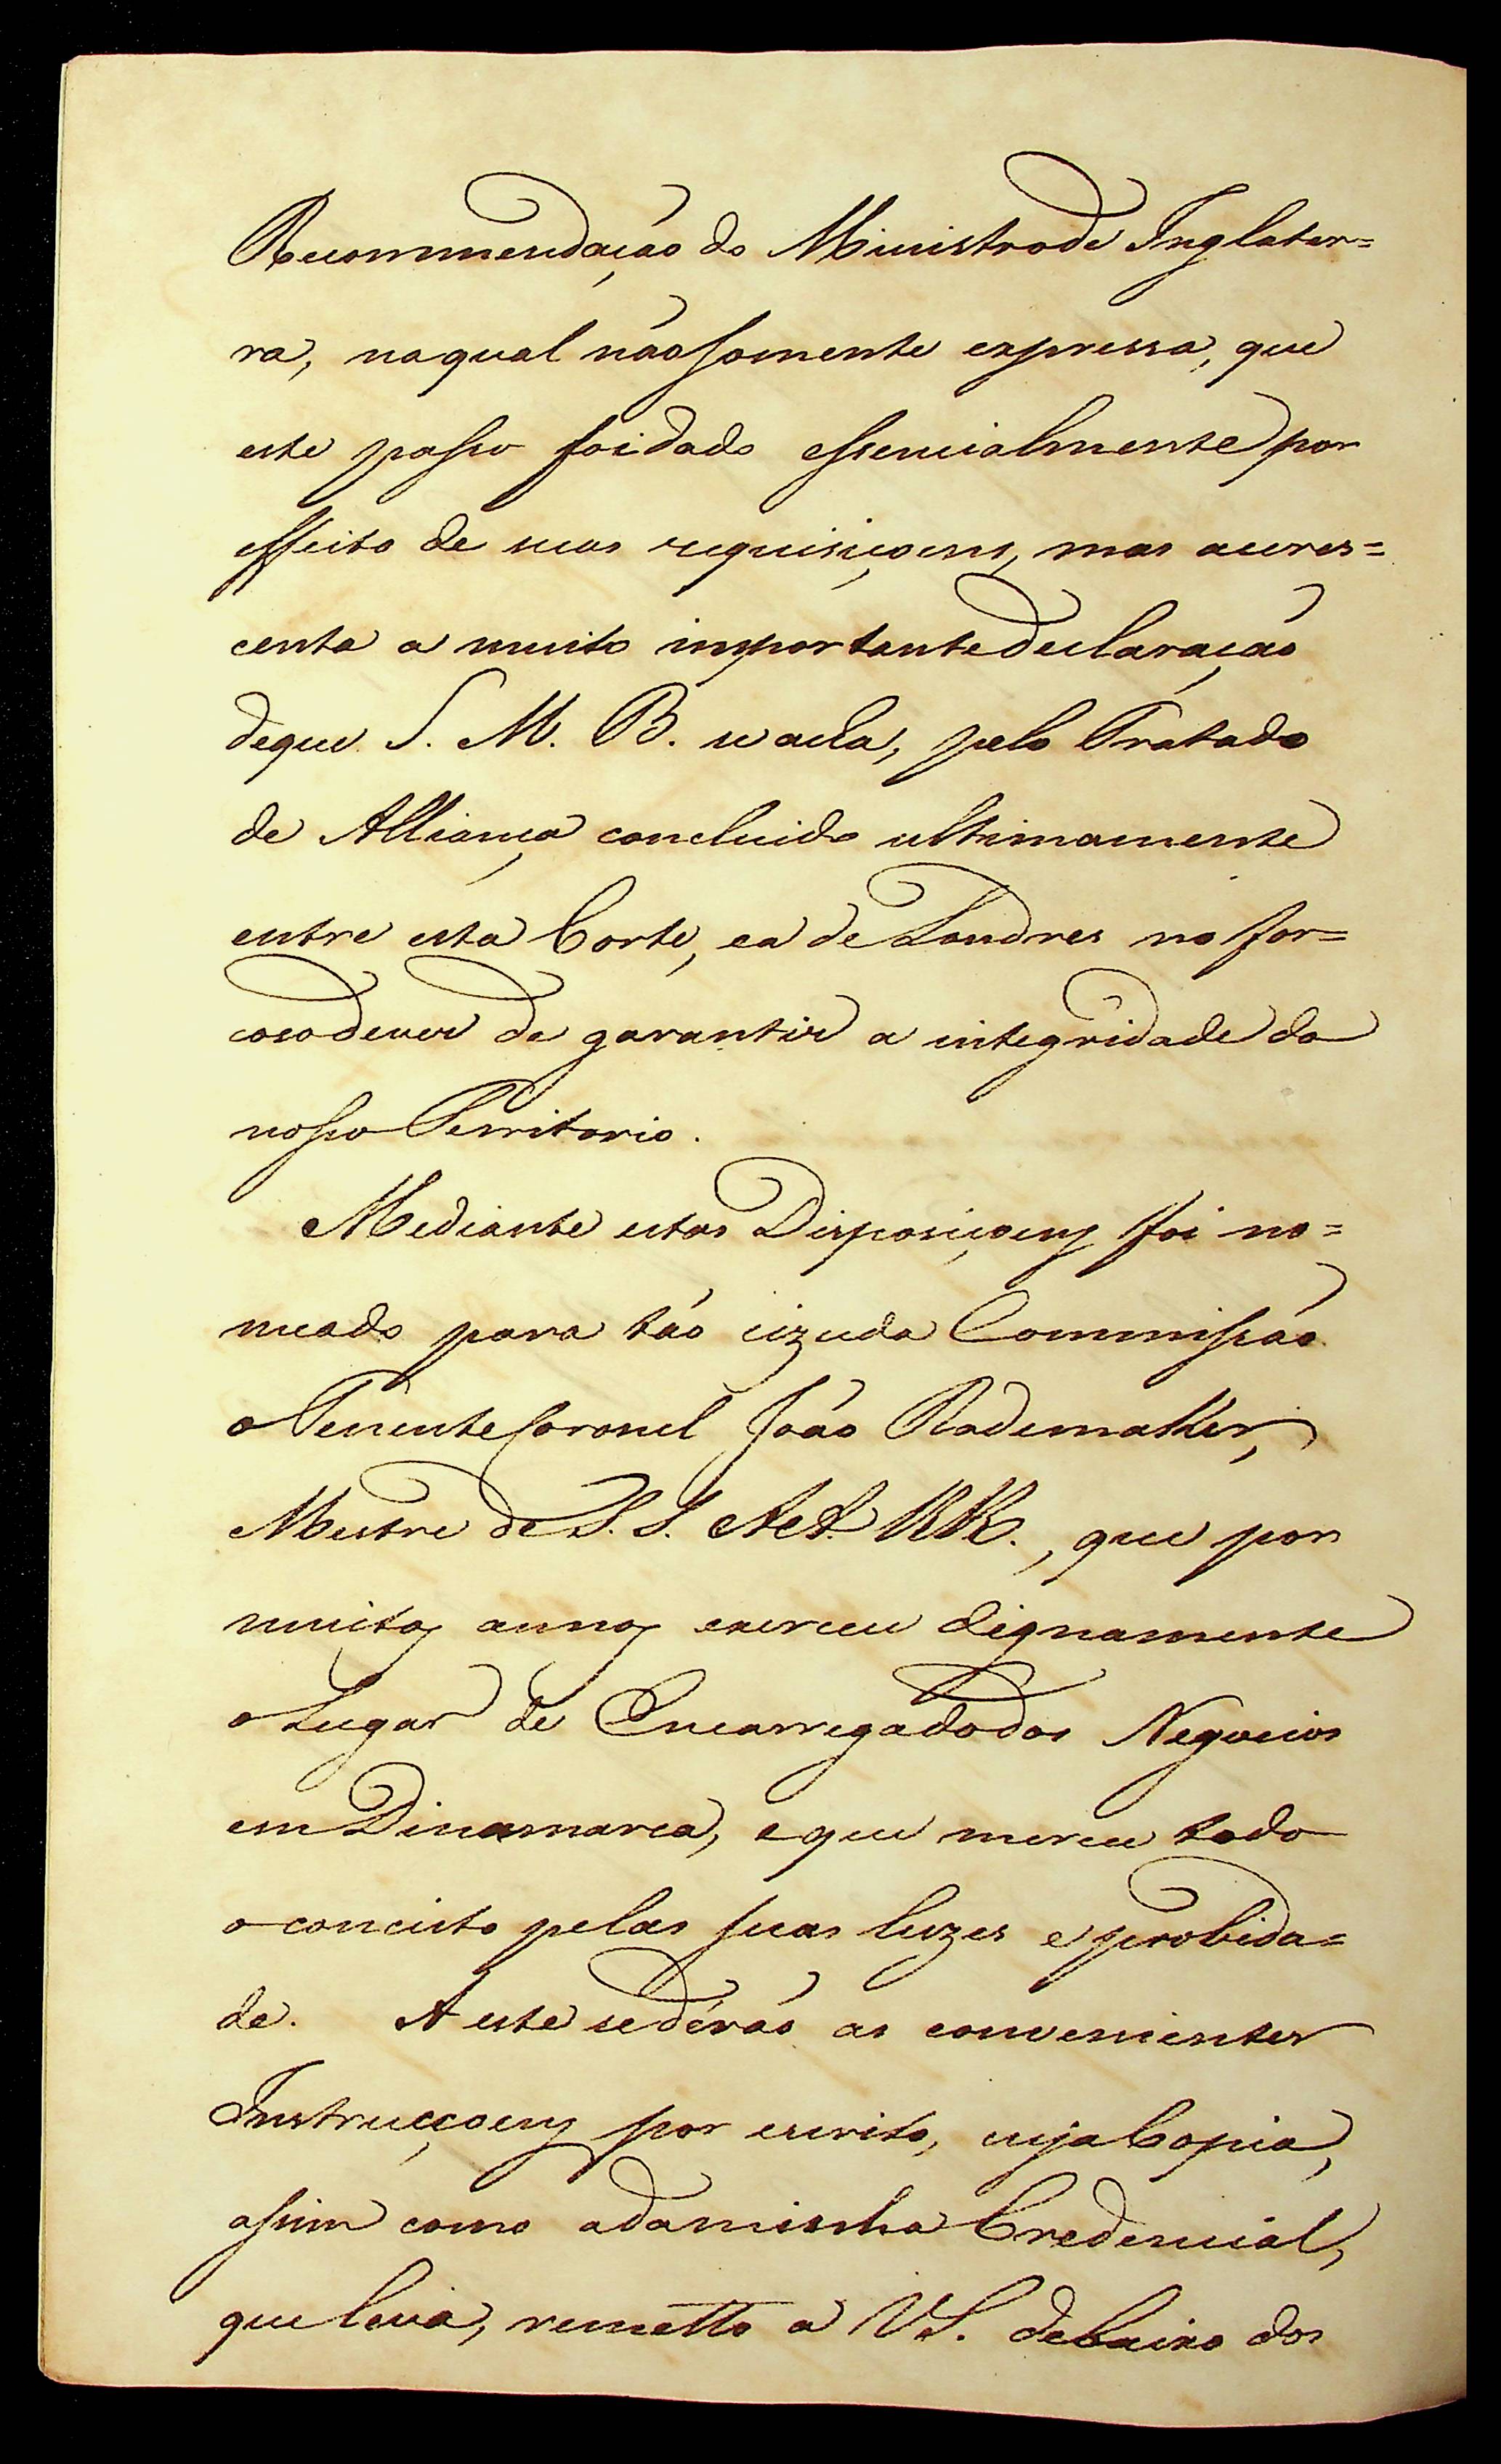 Recommendação do Ministro de Inglater=
ra, na qual não somente expressa, que
este passo foi dado essencialmente por
effeito de suas requisiçoens, mas acres=
centa a muito importante declaração
de que S. M. B. se acha, pelo Tratado
de Alliança concluido ultimamente
entre esta Corte, e a de Londres no for=
coso dever de garantir a integridade do
nosso Territorio.
Mediante estas Disposiçoens foi no=
meado para tão cizuda Commissão
o Tenente Coronel João Rademaker,
Mestre de S. S. A A. R R., que por
muitos annos exerceu dignamente
o Lugar de Encarregado dos Negocios
em Dinamarca, e que merece todo
o conceito pelas suas luzes e probida=
de. A este se dérão as convenientes
Instrucçoens por escrito, cuja Copia,
assim como a da minha Credencial,
que leva, remetto a V S. debaixo dos